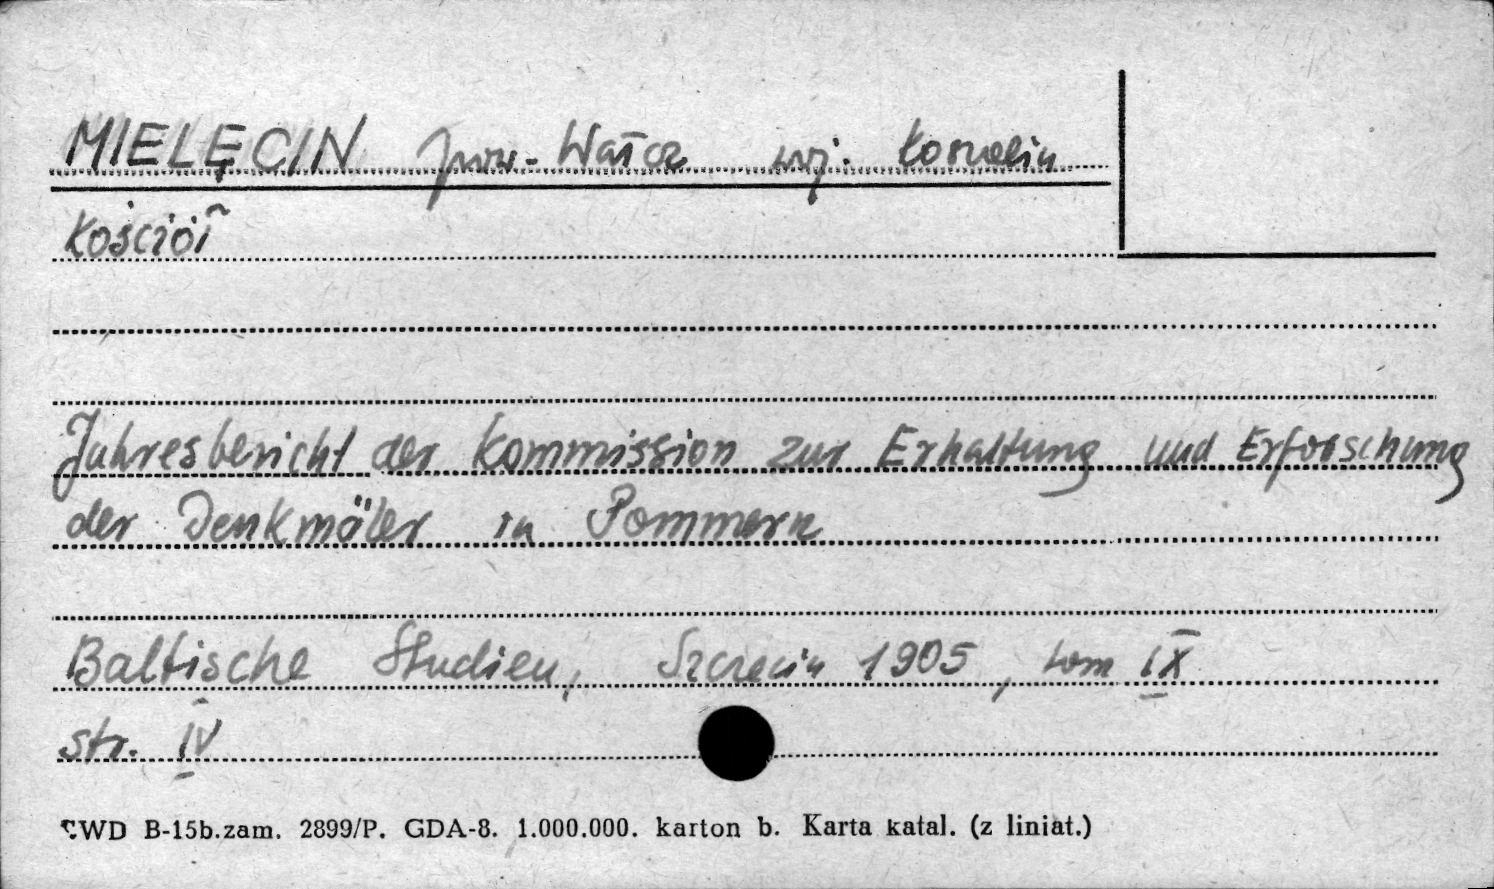 MIELĘCIN pow. Wałcz woj. Koszalin
Kościół
Jahresbericht der Kommission zur Erhaltung und Erforschung
der Denkmäler in Pommern
Baltische Studien, Szczecin 1905, tom IX
str. IV
CWD B-15b.zam. 2899/P. GDA-8. 1.000.000. karton b. Karta katal. (z liniat.)